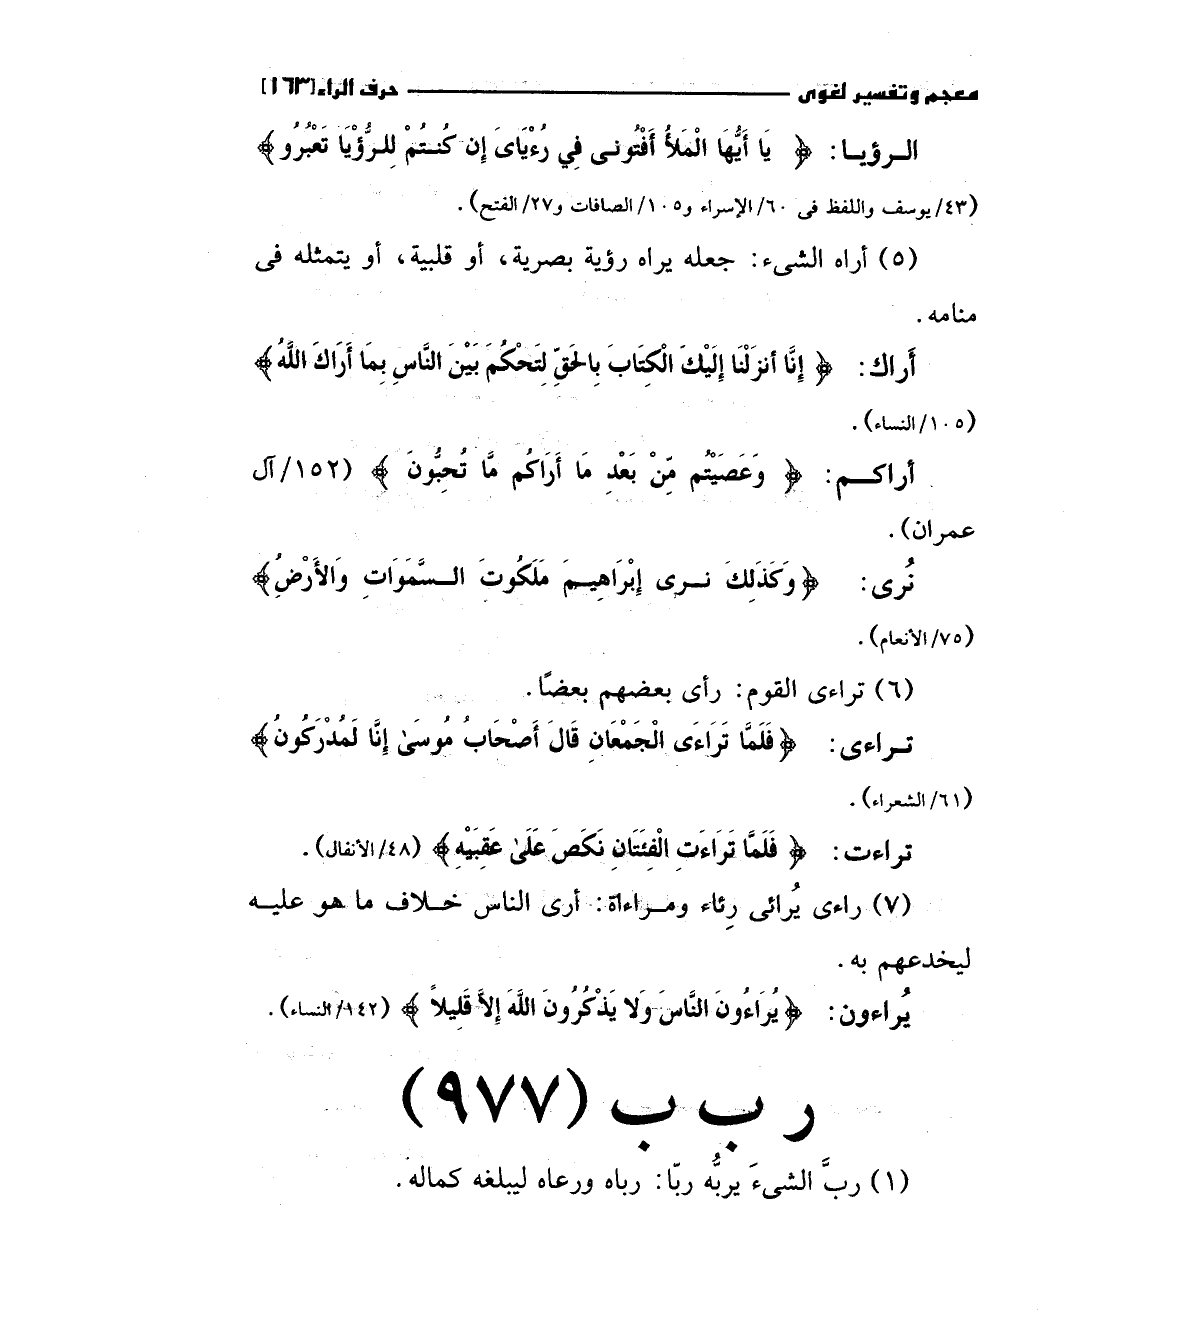 معجم وتفسير لغوى حرف الراء [١٦٣]
الـرؤيـا: ﴿ يَا أَيُّهَا الْمَلأُ أَفْتُونـى فِي رُءْيَاىَ إِن كُنـتُمْ لِلـرُّؤْيَا تَعْبُرُو ﴾
(٤٣/ يوسف واللفظ فى ٦٠/ الإسراء و١٠٥/ الصافات و٢٧/ الفتح).
(٥) أراه الشىء: جعله يراه رؤية بصرية، أو قلبية، أو يتمثله فى
منامه.
أَراك: ﴿ إِنَّا أنزَلْنَا إِلَيْكَ الْكِتَابَ بِالحَقِّ لِتَحْكُمَ بَيْنَ النَّاسِ بِمَا أَرَاكَ اللَّهُ ﴾
(١٠٥/ النساء).
أراكــم: ﴿ وَعَصَيْتُم مِّنْ بَعْدِ مَا أَرَاكُم مَّا تُحِبُّونَ ﴾ (١٥٢/ آل
عمران).
نُرى: ﴿ وَكَذَلِكَ نـرى إِبْرَاهِيـمَ مَلَكُوتَ الـسَّمَوَاتِ وَالأَرْضِ ﴾
(٧٥/ الأنعام).
(٦) تراءى القوم: رأى بعضهم بعضًا.
تـراءى: ﴿ فَلَمَّا تَرَاءَى الْجَمْعَانِ قَالَ أَصْحَابُ مُوسَىٰ إِنَّا لَمُدْرَكُونُ ﴾
(٦١/ الشعراء).
تراءت: ﴿ فَلَمَّا تَرَاءَتِ الْفِئَتَانِ نَكَصَ عَلَىٰ عَقِبَيْهِ ﴾ (٤٨/ الأنفال).
(٧) راءى يُرائى رِئاء ومـراءاة: أرى الناس خـلاف ما هو عليـه
ليخدعهم به.
يُراءون: ﴿ يُرَاءُونَ النَّاسَ وَلا يَذْكُرُونَ اللَّهَ إِلاَّ قَلِيلاً ﴾ (١٤٢/ النساء).
ر ب ب (٩٧٧)
(١) ربَّ الشىءَ يربُّه ربّا: رباه ورعاه ليبلغه كماله.